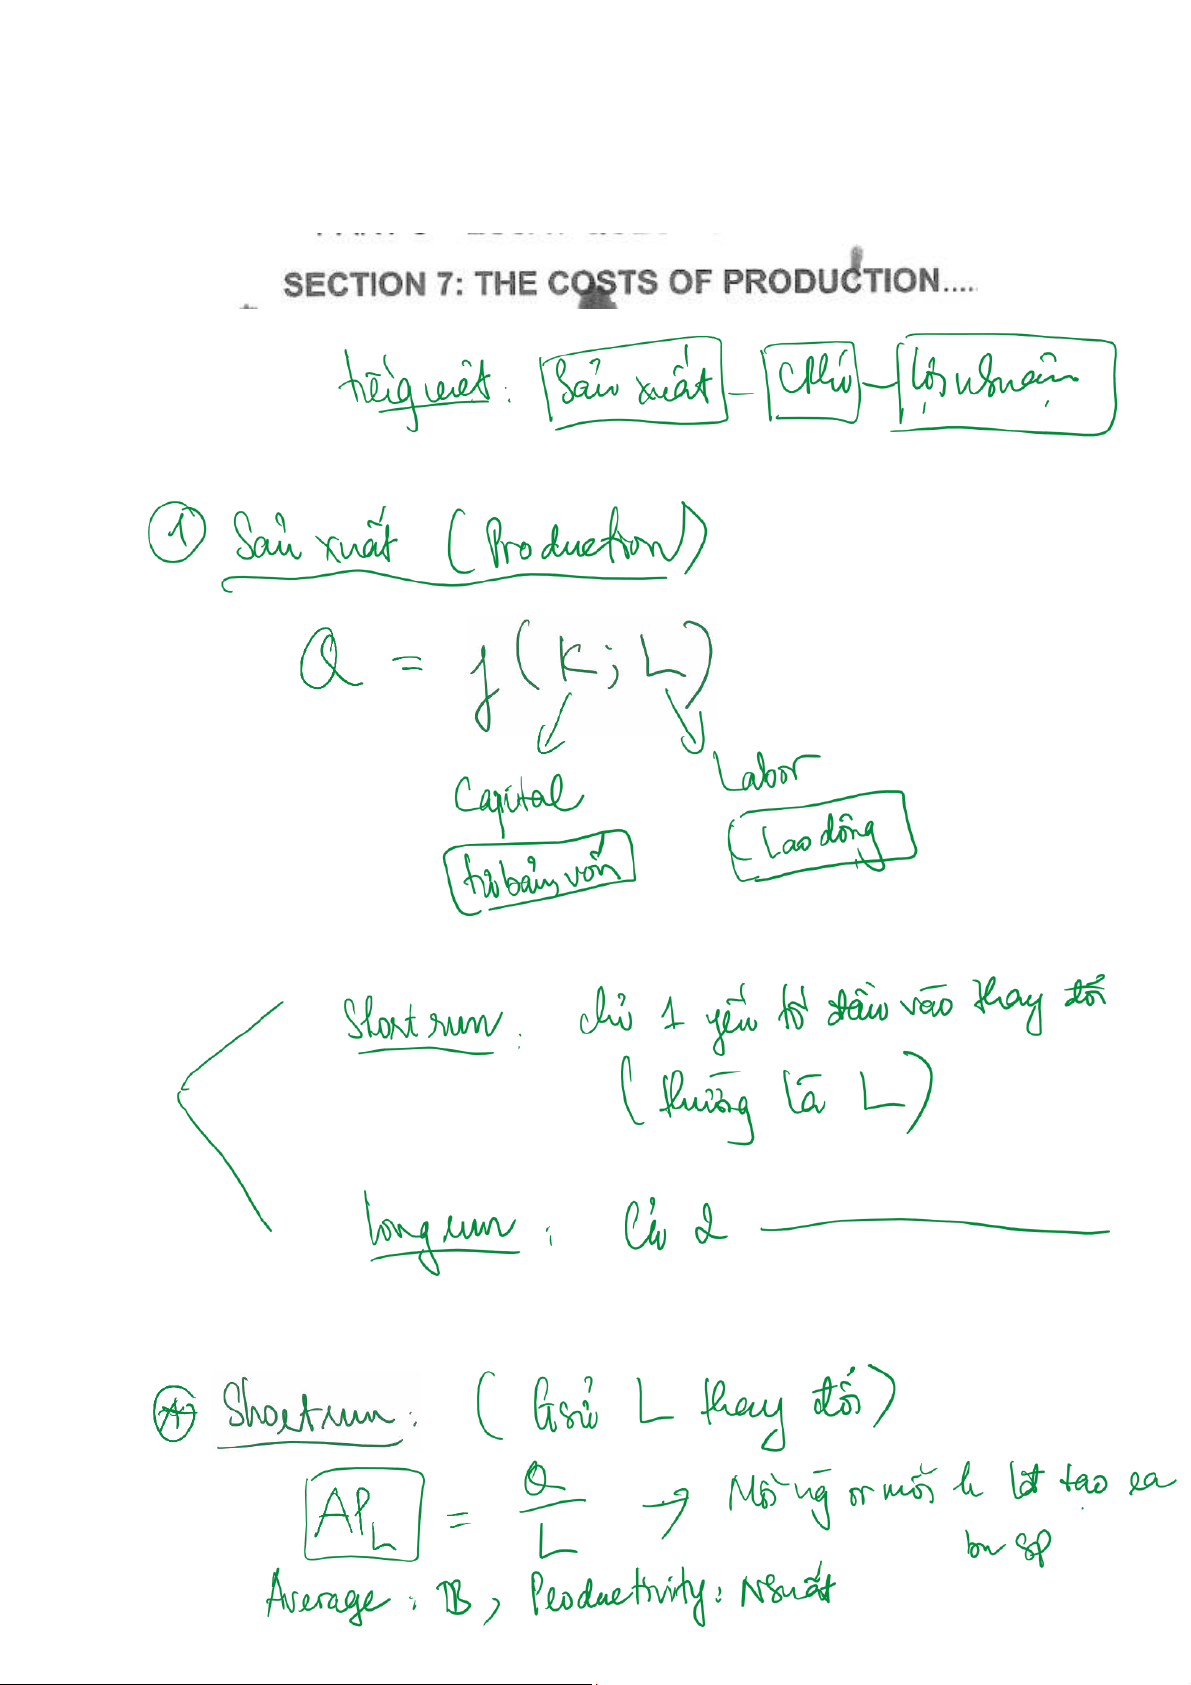 SECTION 7: THE COSTS OF PRODUCTION....
tiếng việt: Sản xuất – Cphí – lợi nhuận
① Sản xuất (Production)
Q = f(K; L)
Capital Labor
tư bản, vốn lao động
Short run: chỉ 1 yếu tố đầu vào thay đổi
(thường là L)
Long run: Cả 2
Short run: (Gsử L thay đổi)
AP_L = Q/L → Mỗi ng or mỗi h lđ tạo ra
bn sp
Average: TB, Productivity: NSuất